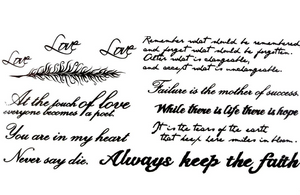 Love Love Love
Remember what should be remembered
and forget what should be forgotten.
Alter what is changeable,
and accept what is unchangeable.
At the touch of love
everyone becomes a poet.
Failure is the mother of success.
While there is life there is hope
You are in my heart
It is the tears of the earth
that keep here smiles in bloom.
Never say die.
Always keep the faith